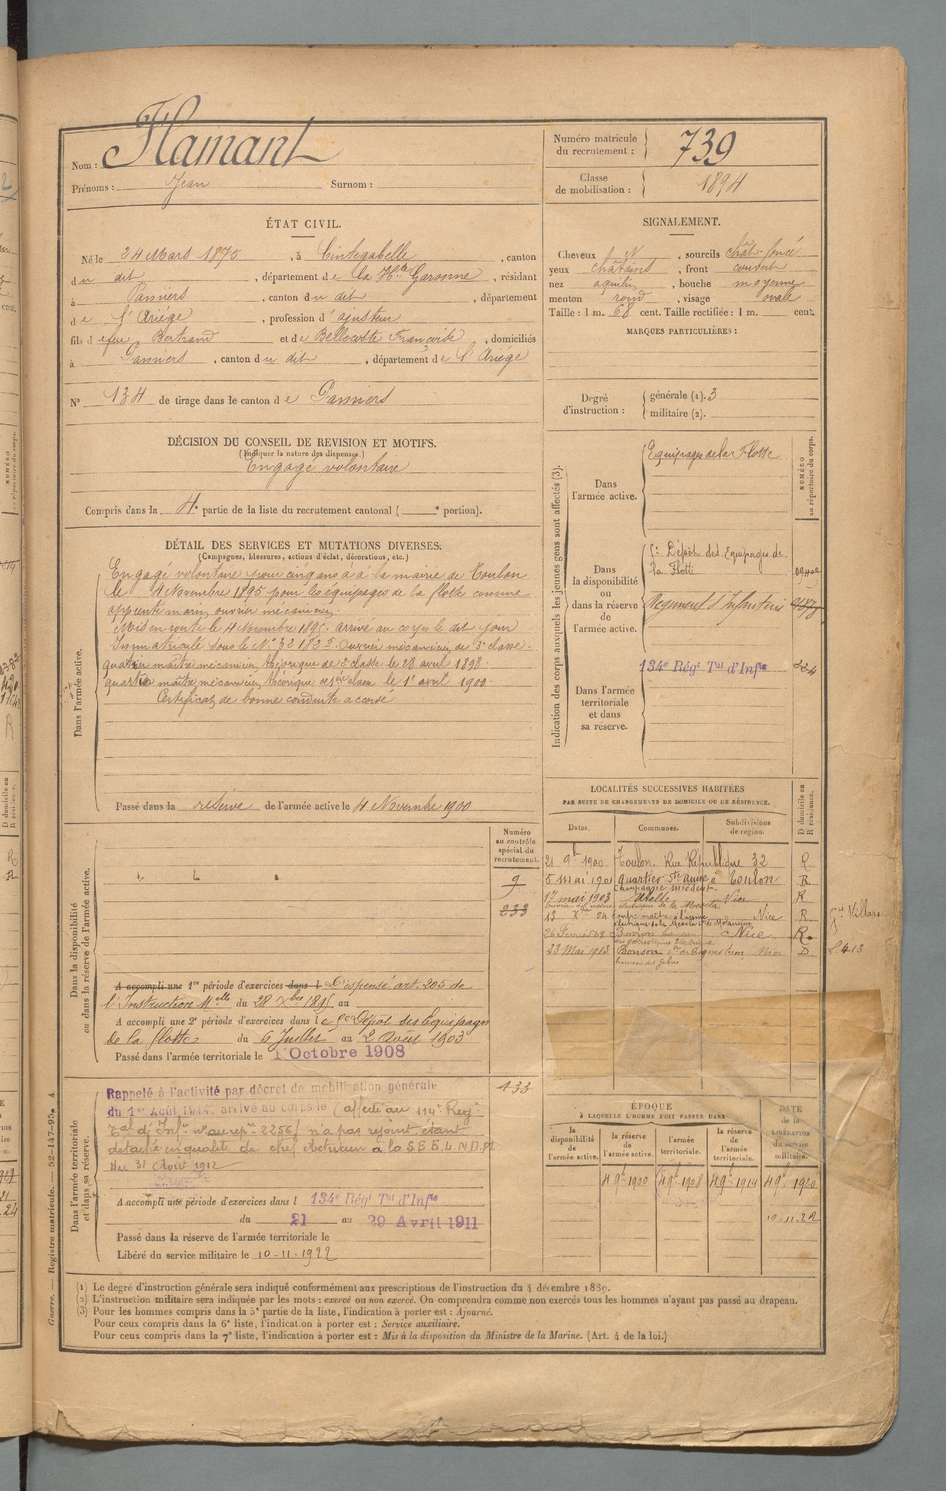 Nom : Flamant
Prénoms : Jean Surnom :
Numéro matricule du recrutement : 739
Classe de mobilisation : 1894
ÉTAT CIVIL.
Né le 24 Mars 1875, à Cintegabelle, canton
du dit, département de la Hte Garonne, résidant
à Pamiers, canton du dit, département
de l'Ariège, profession d'ajusteur
fils de feu Bertrand et de Bellecoste Françoise, domiciliés
à Pamiers, canton du dit, département de l'Ariège
N° 134 de tirage dans le canton de Pamiers
SIGNALEMENT.
Cheveux N, sourcils chât. foncé
yeux châtains, front couvert
nez aquilin, bouche moyenne
menton rond, visage ovale
Taille : 1 m. 68 cent. Taille rectifiée : 1 m. cent.
MARQUES PARTICULIÈRES :
Degré d'instruction : générale (1). 3
militaire (2).
DÉCISION DU CONSEIL DE REVISION ET MOTIFS.
(Indiquer la nature des dispenses.)
Engagé volontaire
Compris dans la 4e partie de la liste du recrutement cantonal ( e portion).
DÉTAIL DES SERVICES ET MUTATIONS DIVERSES.
(Campagnes, blessures, actions d'éclat, décorations, etc.)
Dans l'armée active.
Engagé volontaire pour cinq ans à la mairie de Toulon
le 4 Novembre 1895 pour les équipages de la flotte comme
apprenti marin ouvrier mécanicien.
Mis en route le 4 Novembre 1895. arrivé au corps le dit jour
Immatriculé sous le N° Ouvrier mécanicien de 3e classe.
quartier maître mécanicien théorique de 2e classe le 23 avril 1898.
quartier maître mécanicien théorique de 1re classe le 1er avril 1900.
Certificat de bonne conduite accordé
Passé dans la réserve de l'armée active le 4 Novembre 1900
Indication des corps auxquels les jeunes gens sont affectés (3).
NUMÉRO au répertoire du corps.
Dans l'armée active. Equipages de la Flotte
Dans la disponibilité ou dans la réserve de l'armée active.
5e Dépôt des Equipages de
la Flotte
Régiment d'Infanterie
Dans l'armée territoriale et dans sa réserve.
134e Régt Tal d'Infie
LOCALITÉS SUCCESSIVES HABITÉES
PAR SUITE DE CHANGEMENTS DE DOMICILE OU DE RÉSIDENCE.
Dates. Communes. Subdivisions de région. D domicile ou R résidence.
21 9bre 1900 Toulon. Rue République 32 R
5 mai 1901 quartier Ste Anne à Toulon R
17 mai 1903 Nice R
13 Xbre 04 Nice R
26 Février 08 Nice R
23 Mai 1913 Bonson Nice D
Villars
Dans la disponibilité ou dans la réserve de l'armée active.
Numéro au contrôle spécial du recrutement.
9
233
A accompli une 1re période d'exercices dans l Dispensé art. 205 de
l'Instruction Melle du 28 Xbre 1895 au
A accompli une 2e période d'exercices dans le 5e Dépôt des Equipages
de la flotte du 6 Juillet au 2 Août 1903
Passé dans l'armée territoriale le 1er Octobre 1908
Dans l'armée territoriale et dans sa réserve.
433
Rappelé à l'activité par décret de mobilisation générale
du 1er Août 1914, arrivé au corps le (affecté au 114e Régt
Tal d'Infie n° au rép. 2256) n'a pas rejoint étant
détaché en qualité de chef électricien à la
du 31 Août 1912
A accompli une période d'exercices dans l 134e Régt Tal d'Infie
du 21 au 29 Avril 1911
Passé dans la réserve de l'armée territoriale le
Libéré du service militaire le 10-11-1922
ÉPOQUE
À LAQUELLE L'HOMME DOIT PASSER DANS
la disponibilité de l'armée active. la réserve de l'armée active. l'armée territoriale. la réserve de l'armée territoriale. DATE de la LIBÉRATION du service militaire.
4 9bre 1900 4 9bre 1908 4 9bre 1914 4 9bre 1920
10.11.22
(1) Le degré d'instruction générale sera indiqué conformément aux prescriptions de l'instruction du 4 décembre 1889.
(2) L'instruction militaire sera indiquée par les mots : exercé ou non exercé. On comprendra comme non exercés tous les hommes n'ayant pas passé au drapeau.
(3) Pour les hommes compris dans la 5e partie de la liste, l'indication à porter est : Ajourné.
Pour ceux compris dans la 6e liste, l'indication à porter est : Service auxiliaire.
Pour ceux compris dans la 7e liste, l'indication à porter est : Mis à la disposition du Ministre de la Marine. (Art. 4 de la loi.)
Guerre. — Registre matricule. — 52-147-95. 4